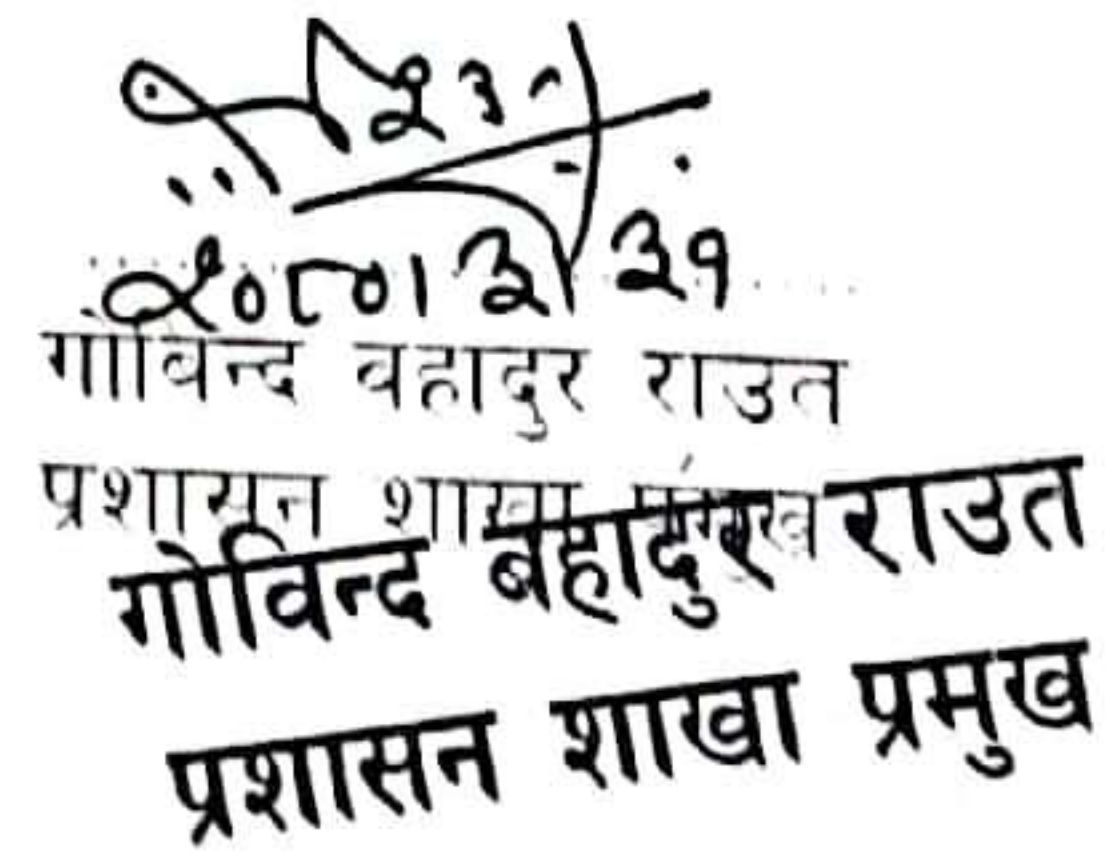 २०८०।३।३१
गोविन्द वहादुर राउत
प्रशासन शाखा
गोविन्द बहादुर राउत
प्रशासन शाखा प्रमुख